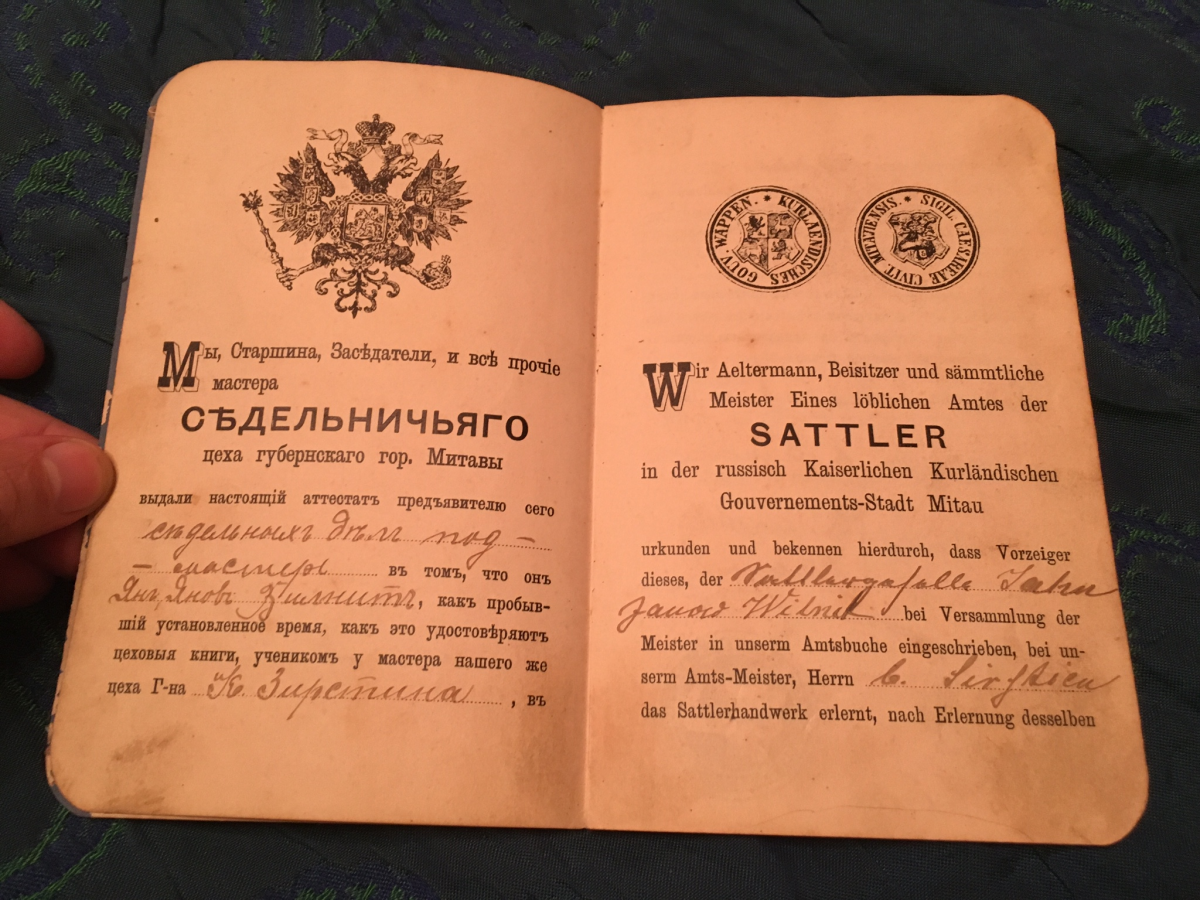 Мы, Старшина, Засѣдатели, и всѣ прочіе
мастера
СѢДЕЛЬНИЧЬЯГО
цеха губернскаго гор. Митавы
выдали настоящій аттестатъ предъявителю сего
сѣдельныхъ дѣлъ под-
-мастерь въ томъ, что онъ
Янъ Яновъ, какъ пробыв-
шій установленное время, какъ это удостовѣряютъ
цеховыя книги, ученикомъ у мастера нашего же
цеха Г-на К. Зирстина, въ
GOUV. WAPPEN. * KURLAENDISCHES
SIGIL. CAESAREAE CIVIT. MITAVIENSIS. *
Wir Aeltermann, Beisitzer und sämmtliche
Meister Eines löblichen Amtes der
SATTLER
in der russisch Kaiserlichen Kurländischen
Gouvernements-Stadt Mitau
urkunden und bekennen hierdurch, dass Vorzeiger
dieses, der Sattlergeselle Jahn
Janow bei Versammlung der
Meister in unserm Amtsbuche eingeschrieben, bei un-
serm Amts-Meister, Herrn
das Sattlerhandwerk erlernt, nach Erlernung desselben